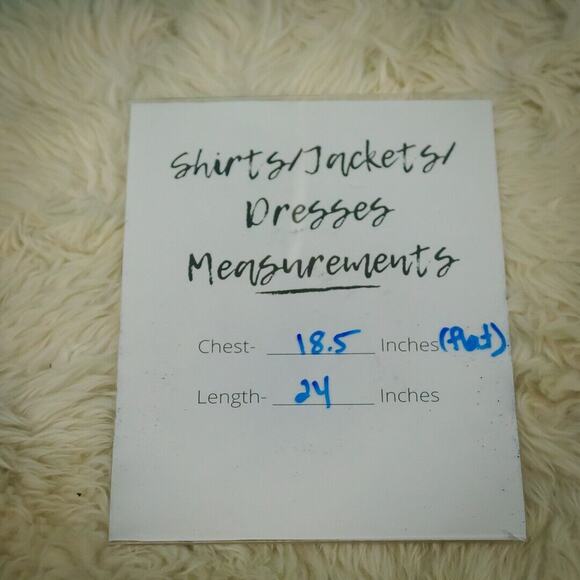 Shirts/Jackets/
Dresses
Measurements
Chest- 18.5 Inches (flat)
Length- 24 Inches